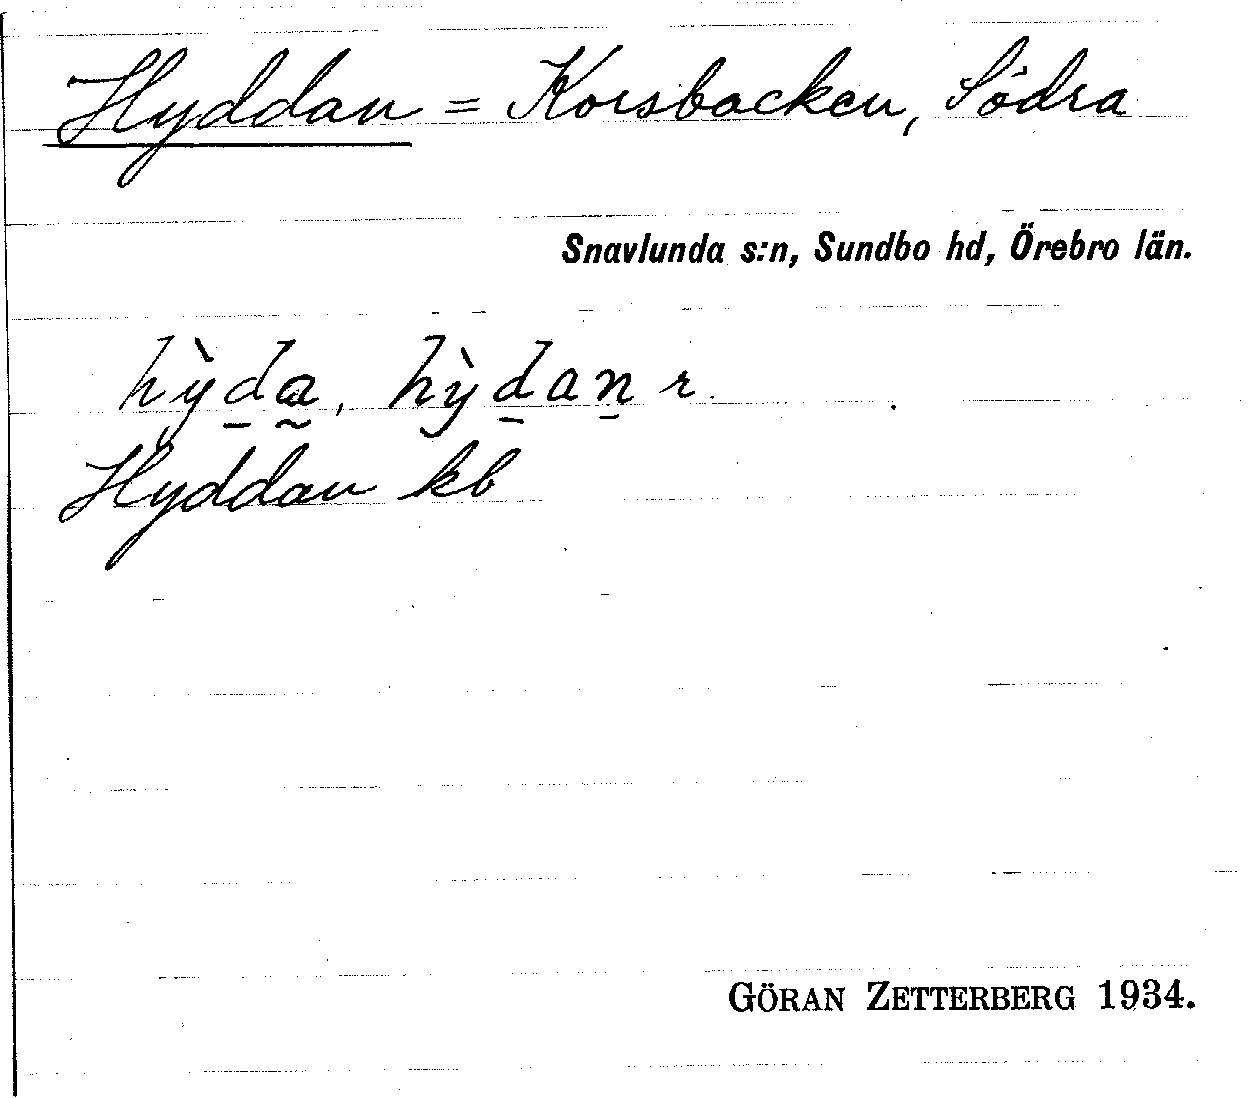 Hyddan = Korsbacken, Södra
Snavlunda s:n, Sundbo hd, Örebro län.
hỳd̲a̰, hỳd̲an̲ r.
Hyddan kb
GÖRAN ZETTERBERG 1934.